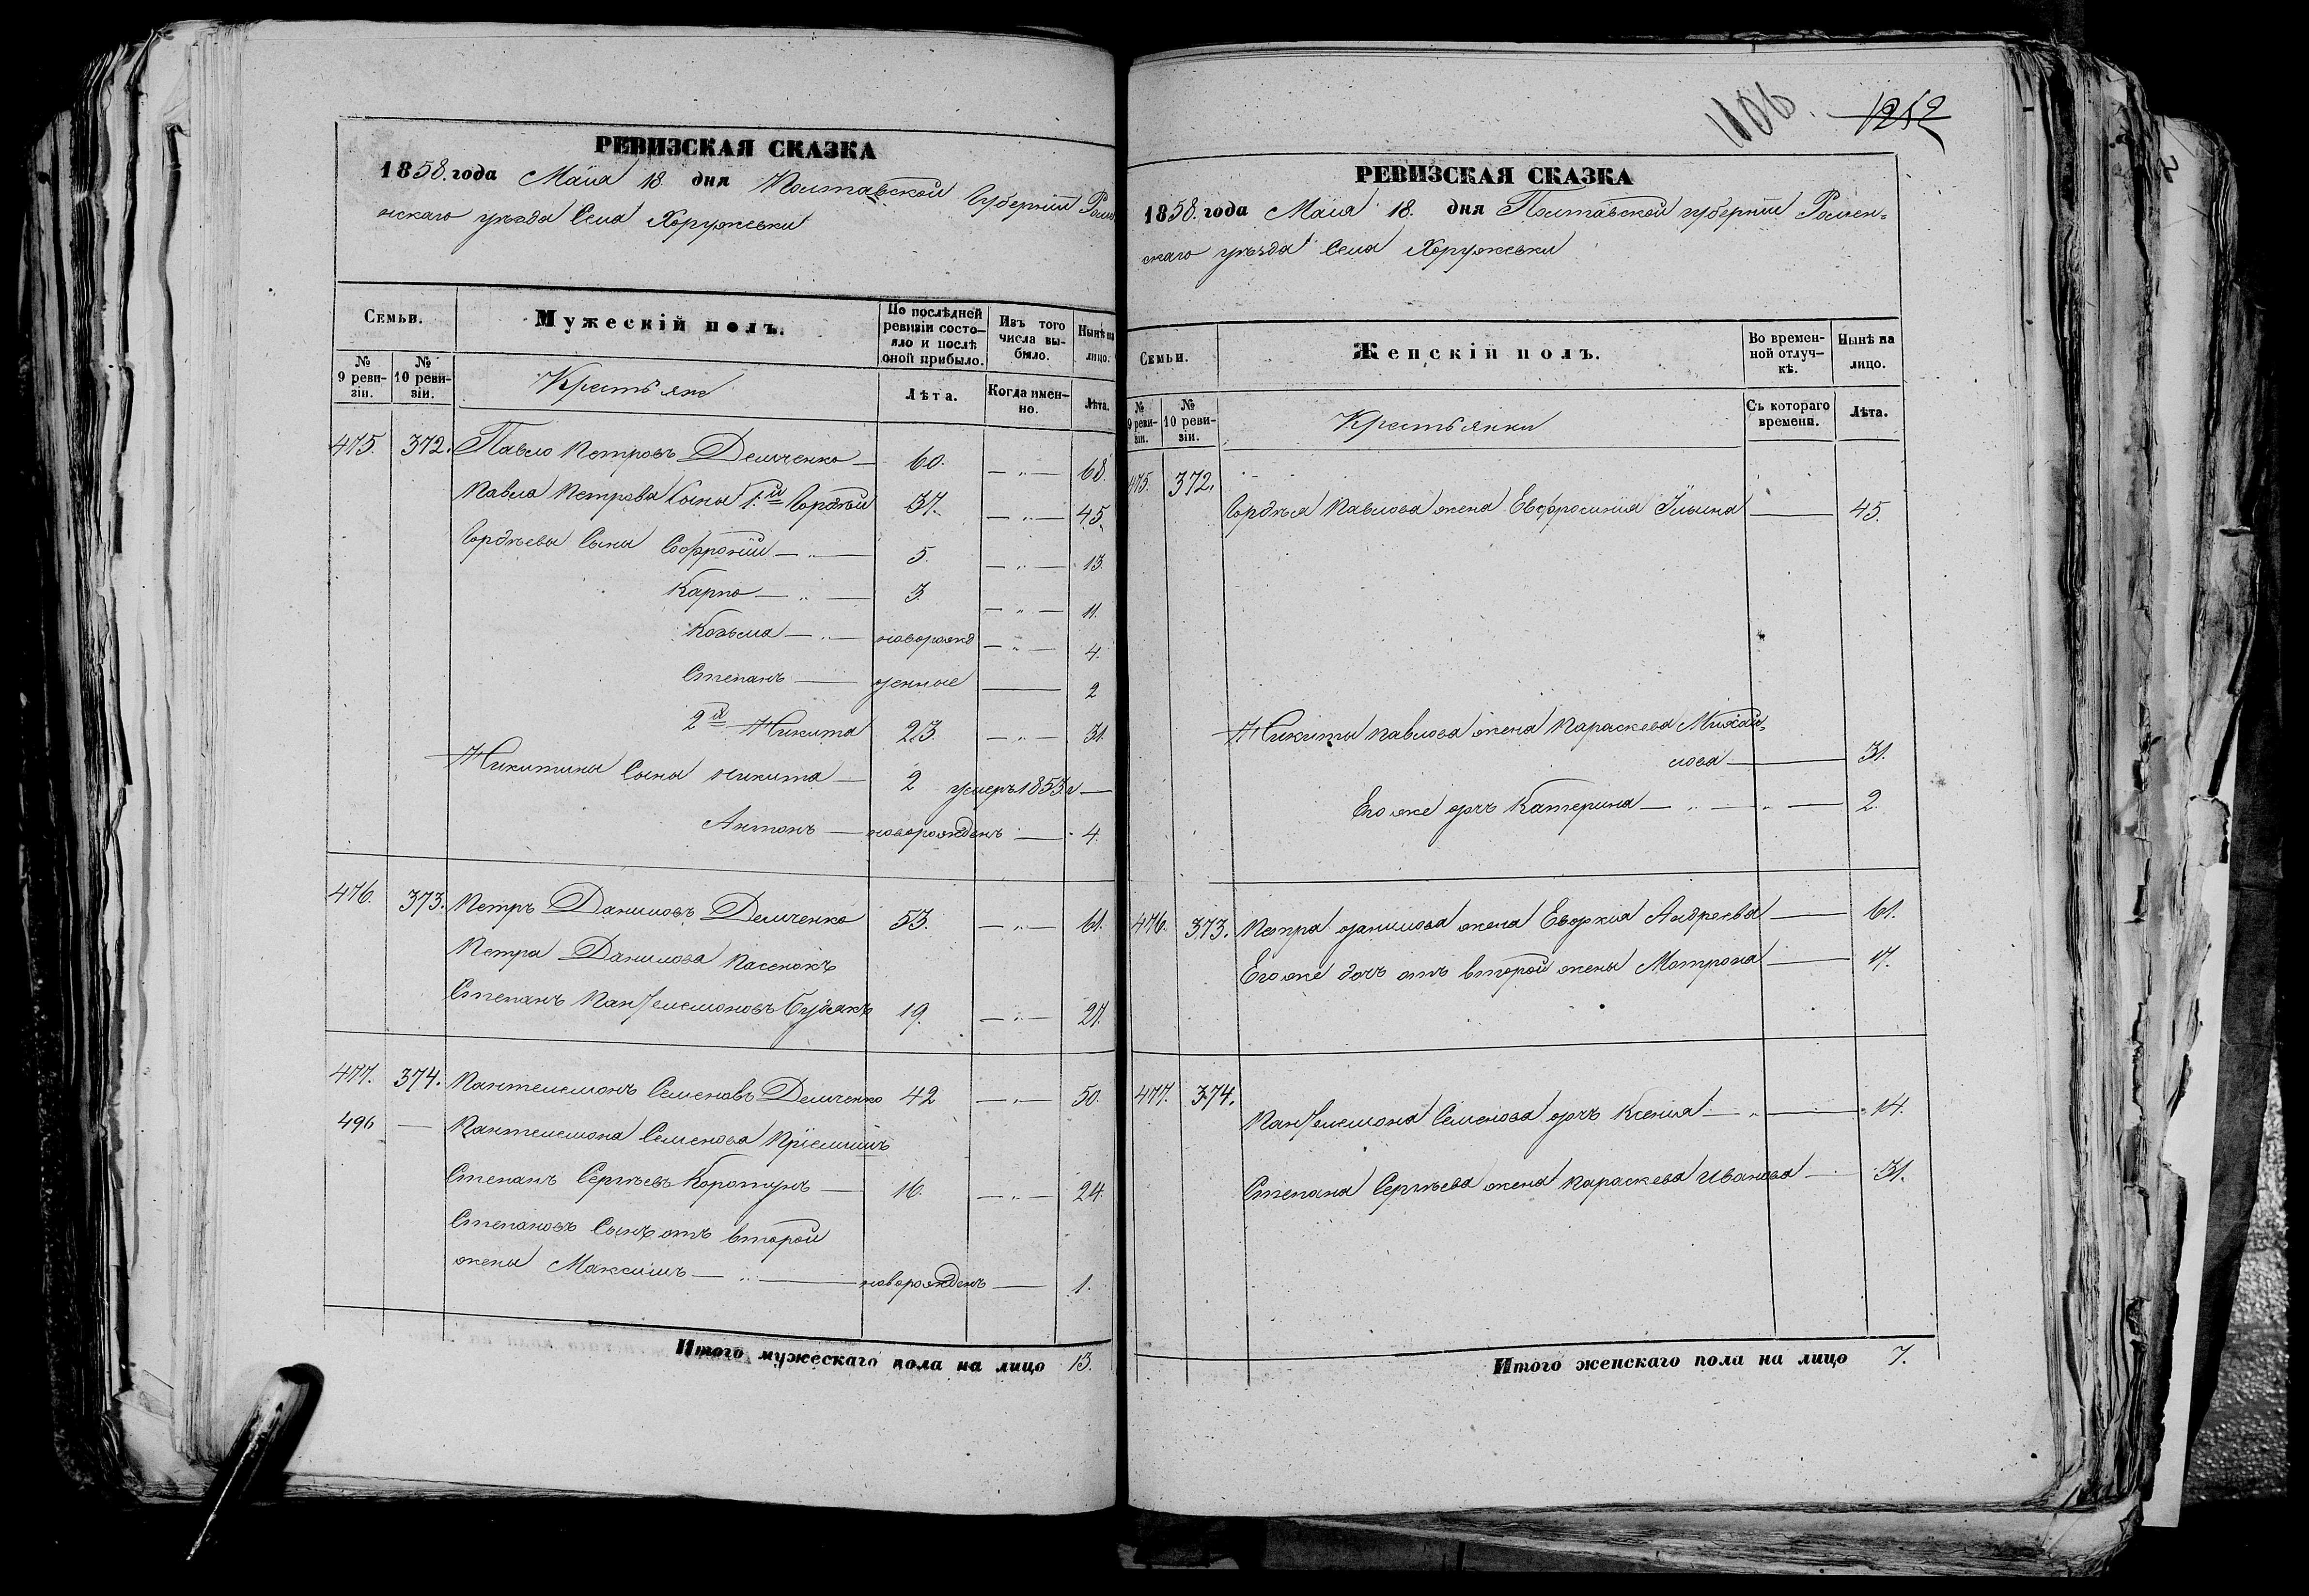 РЕВИЗСКАЯ СКАЗКА
1858. года Маия 18. дня Полтавской Губерніи Роме
нскаго уѣзда Села Хоружевки
Семьи.
Мужескій полъ.
По послѣдней ревизіи состо-яло и послѣ оной прибыло.
Изъ того числа вы-было.
Нынѣ на лицо.
№ 9 реви-зіи.
№ 10 реви-зіи.
Крестьяне
Лѣта.
Когда имен-но.
Лѣта.
475. 372. Павло Петровъ Демченко — 60. — „ — 68.
Павла Петрова Сыны 1.й Гордѣй 37. — „ — 45.
Гордѣевы Сыны Софроній — „ — 5. — „ — 13.
Карпо — „ — 3. — „ — 11.
Козьма — „ — новорожд — „ — 4.
Степанъ — денные — 2
2й Никита 23. — „ — 31.
Никитины Сыны Никита — 2 умеръ 1853. г —
Антонъ — новорожденъ — 4.
476. 373. Петръ Даниловъ Демченко 53. — „ — 61.
Петра Данилова пасенокъ
Степанъ Пантелемоновъ Будякъ 19. — „ — 27.
477. 374. Пантелемонъ Семеновъ Демченко 42 — „ — 50.
496 — Пантелемона Семенова Пріемышъ
Степанъ Сергѣевъ Коротунъ — 16. — „ — 24.
Степановъ Сынъ отъ второй
жены Максимъ — „ — новорожденъ — 1.
Итого мужескаго пола на лицо 13.
1106. 1252
РЕВИЗСКАЯ СКАЗКА
1858. года Маия 18. дня Полтавской губерніи Ромен-
скаго уѣзда Села Хоружевки
Семьи.
Женскій полъ.
Во времен-ной отлуч-кѣ.
Нынѣ на лицо.
№ 9 реви-зіи.
№ 10 реви-зіи.
Крестьянки
Съ котораго времени.
Лѣта.
475. 372.
Гордѣя Павлова жена Евфросинія Ильина — 45.
Никиты Павлова жена Параскева Михай-
лова — 31.
Его же дочь Катерина — „ — „ — 2.
476. 373. Петра Данилова жена Евдокия Андреева — 61.
Его же дочь отъ второй жены Мотрона — 17.
477. 374.
Пантелемона Семенова дочь Ксения — „ — 14.
Степана Сергѣева жена Параскева Иванова — 31.
Итого женскаго пола на лицо 7.